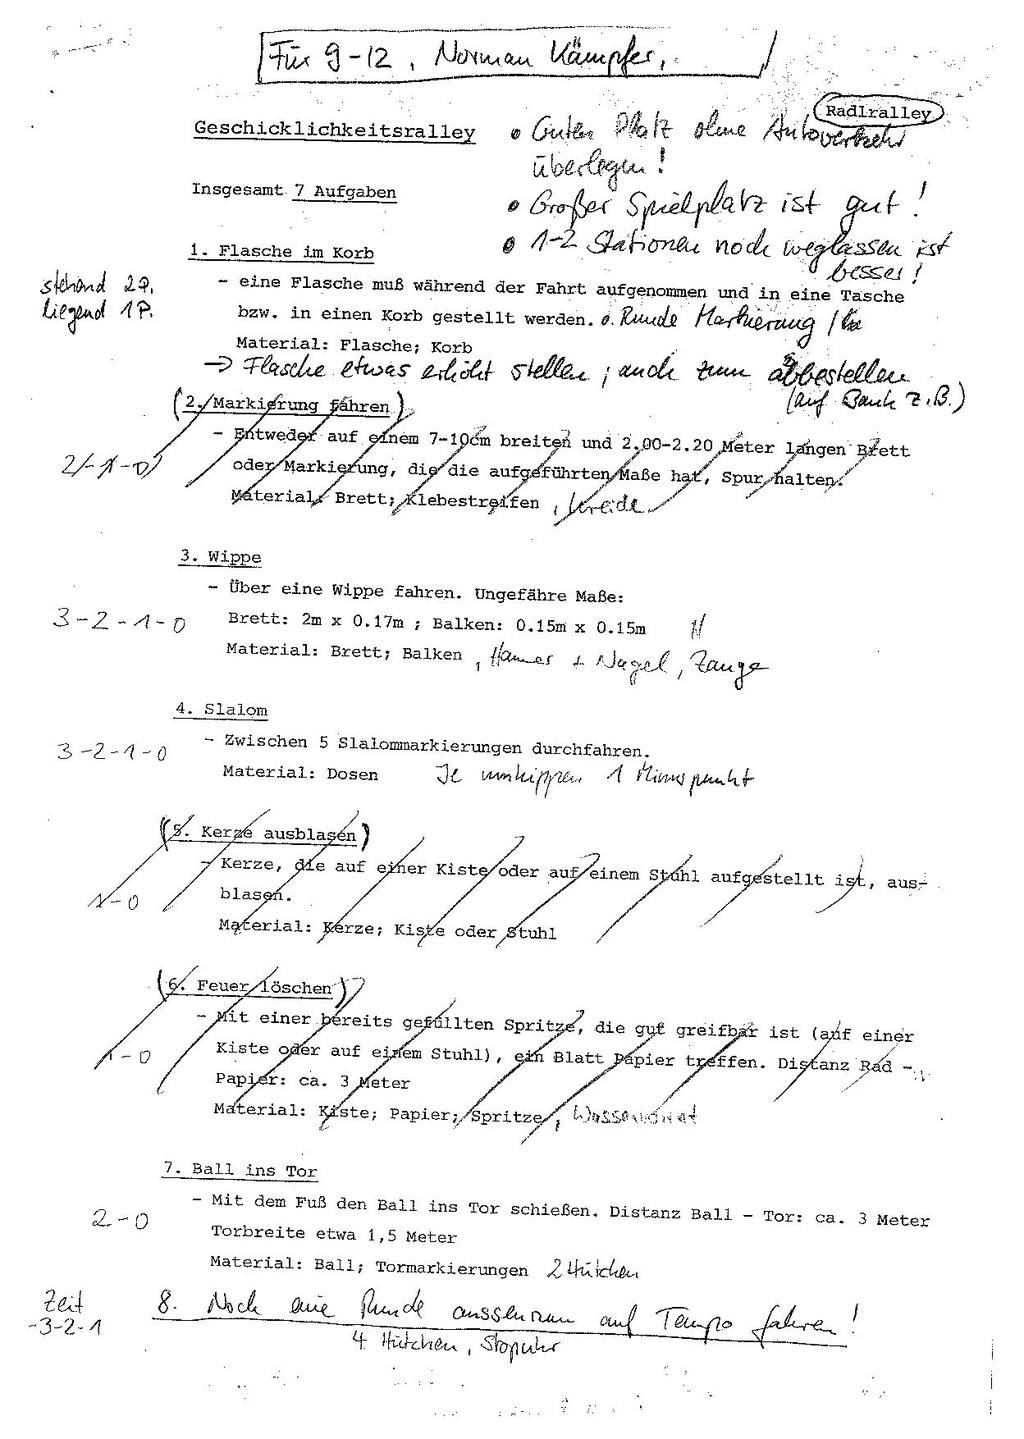 Für 9-12, Norman Kämpfer,
Radlralley
Geschicklichkeitsralley
• Guten Platz ohne Autoverkehr
überlegen!
Insgesamt 7 Aufgaben
• Großer Spielplatz ist gut!
• 1-2 Stationen noch weglassen ist
besser!
1. Flasche im Korb
stehend 2P.
liegend 1P.
- eine Flasche muß während der Fahrt aufgenommen und in eine Tasche
bzw. in einen Korb gestellt werden. o. Runde Markierung
Material: Flasche; Korb
→ Flasche etwas erhöht stellen; auch zum abbestellen
(auf Bank z.B.)
(2. Markierung fahren)
2-1-0
- Entweder auf einem 7-10cm breiten und 2.00-2.20 Meter langen Brett
oder Markierung, die die aufgeführten Maße hat, Spur halten.
Material: Brett; Klebestreifen, Kreide
3. Wippe
- Über eine Wippe fahren. Ungefähre Maße:
3-2-1-0
Brett: 2m x 0.17m ; Balken: 0.15m x 0.15m
Material: Brett; Balken, Hammer + Nagel, Zange
4. Slalom
3-2-1-0
- Zwischen 5 Slalommarkierungen durchfahren.
Material: Dosen Je umkippen 1 Minuspunkt
(5. Kerze ausblasen)
- Kerze, die auf einer Kiste oder auf einem Stuhl aufgestellt ist, aus-
1-0
blasen.
Material: Kerze; Kiste oder Stuhl
(6. Feuer löschen)
- Mit einer bereits gefüllten Spritze, die gut greifbar ist (auf einer
1-0
Kiste oder auf einem Stuhl), ein Blatt Papier treffen. Distanz Rad -
Papier: ca. 3 Meter
Material: Kiste; Papier; Spritze,
7. Ball ins Tor
2-0
- Mit dem Fuß den Ball ins Tor schießen. Distanz Ball - Tor: ca. 3 Meter
Torbreite etwa 1,5 Meter
Material: Ball; Tormarkierungen 2 Hütchen
Zeit
-3-2-1
8. Noch eine Runde aussenrum auf Tempo fahren!
4 Hütchen, Stopuhr